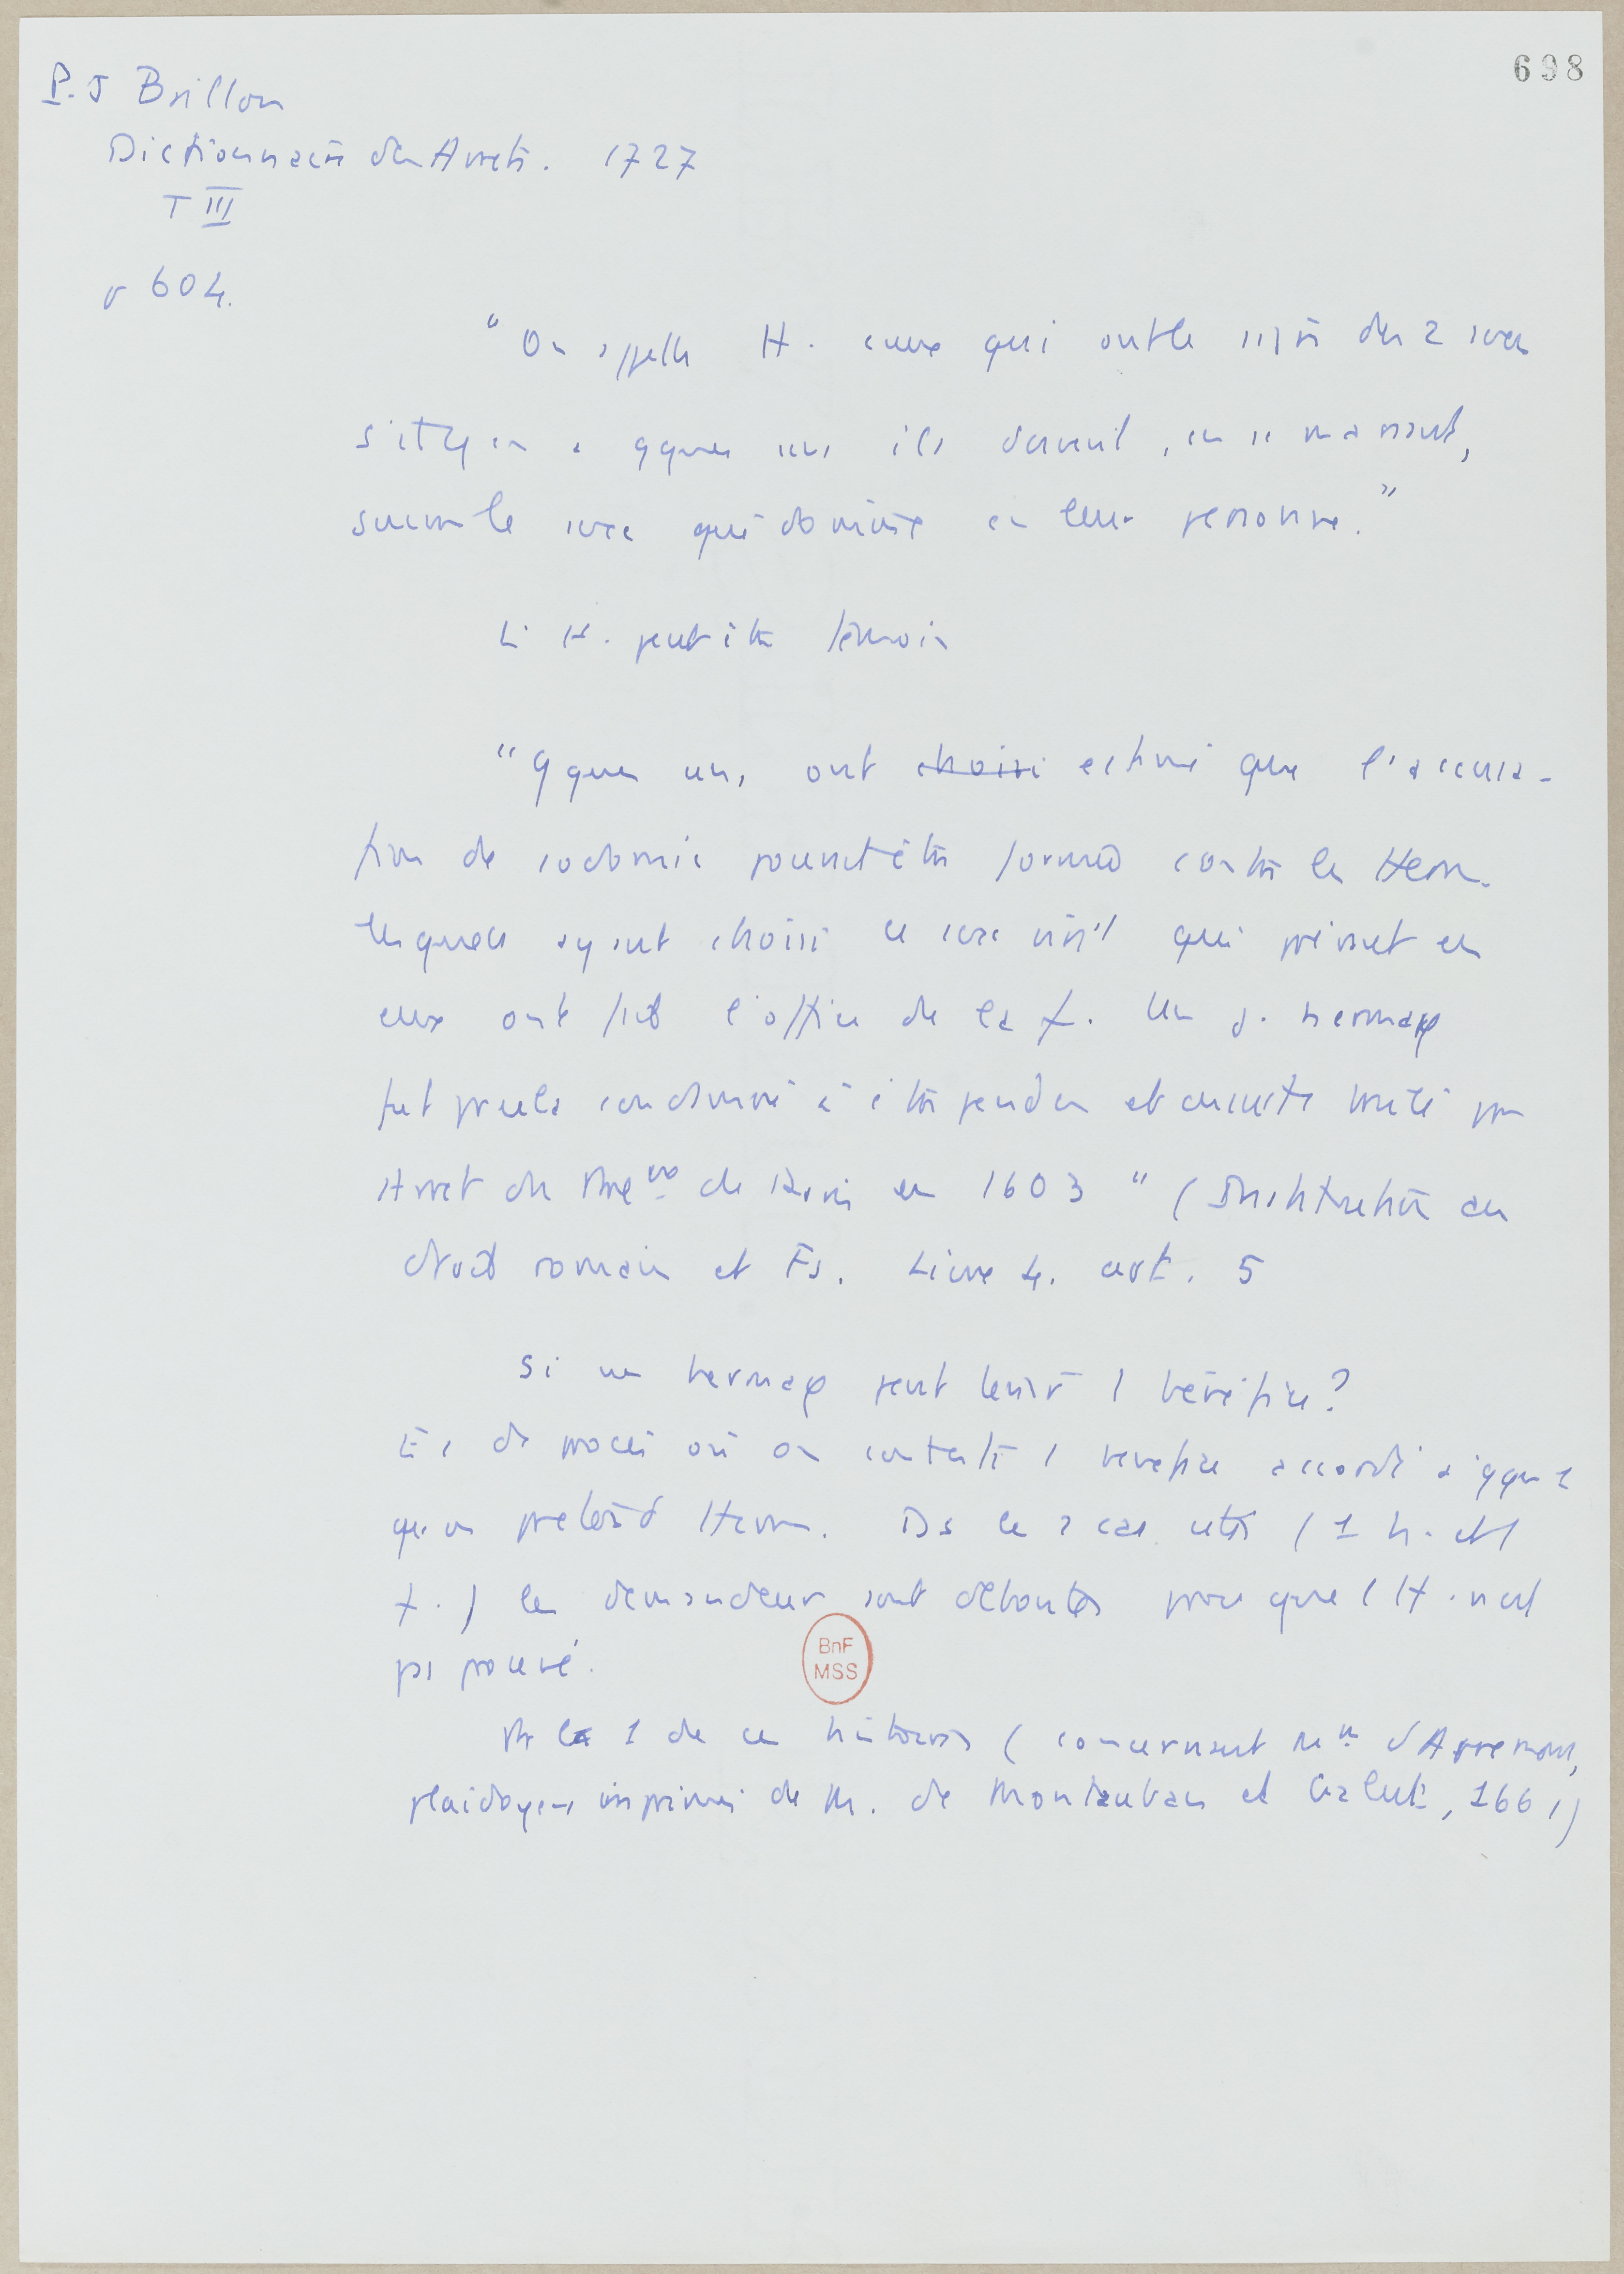 698
P. J Brillon
Dictionnaire des Arrets. 1727
T III
p 604.
"On appelle H. ceux qui ont le des 2 sexes
a qques uns ils doivent, en se mariant,
suivre le sexe qui domine en leur personne."
L' H. peut être témoin
"Qques uns ont choisi estimé que l'accusa-
tion de sodomie pouvait être formée contre les Herm.
lesquels ayant choisi le sexe viril qui prévaut en
eux ont fait l'office de la f. Un j. hermaφ
fut pour cela condamné à être pendu et ensuite brulé par
Arret du de Paris en 1603" (
droit romain et Fs. Livre 4. art. 5
Si un hermaφ peut tenir 1 bénéfice?
de procès où on conteste 1 bénéfice accordé à qqu 1
qu'on prétend Herm. Ds les 2 cas cités (1 h. et 1
f.) les demandeurs sont déboutés parce que l H. n'est
pas prouvé.
1 de ces histoires (concernant
plaidoyers imprimés de M. de Montauban et, 1661)
BnF
MSS